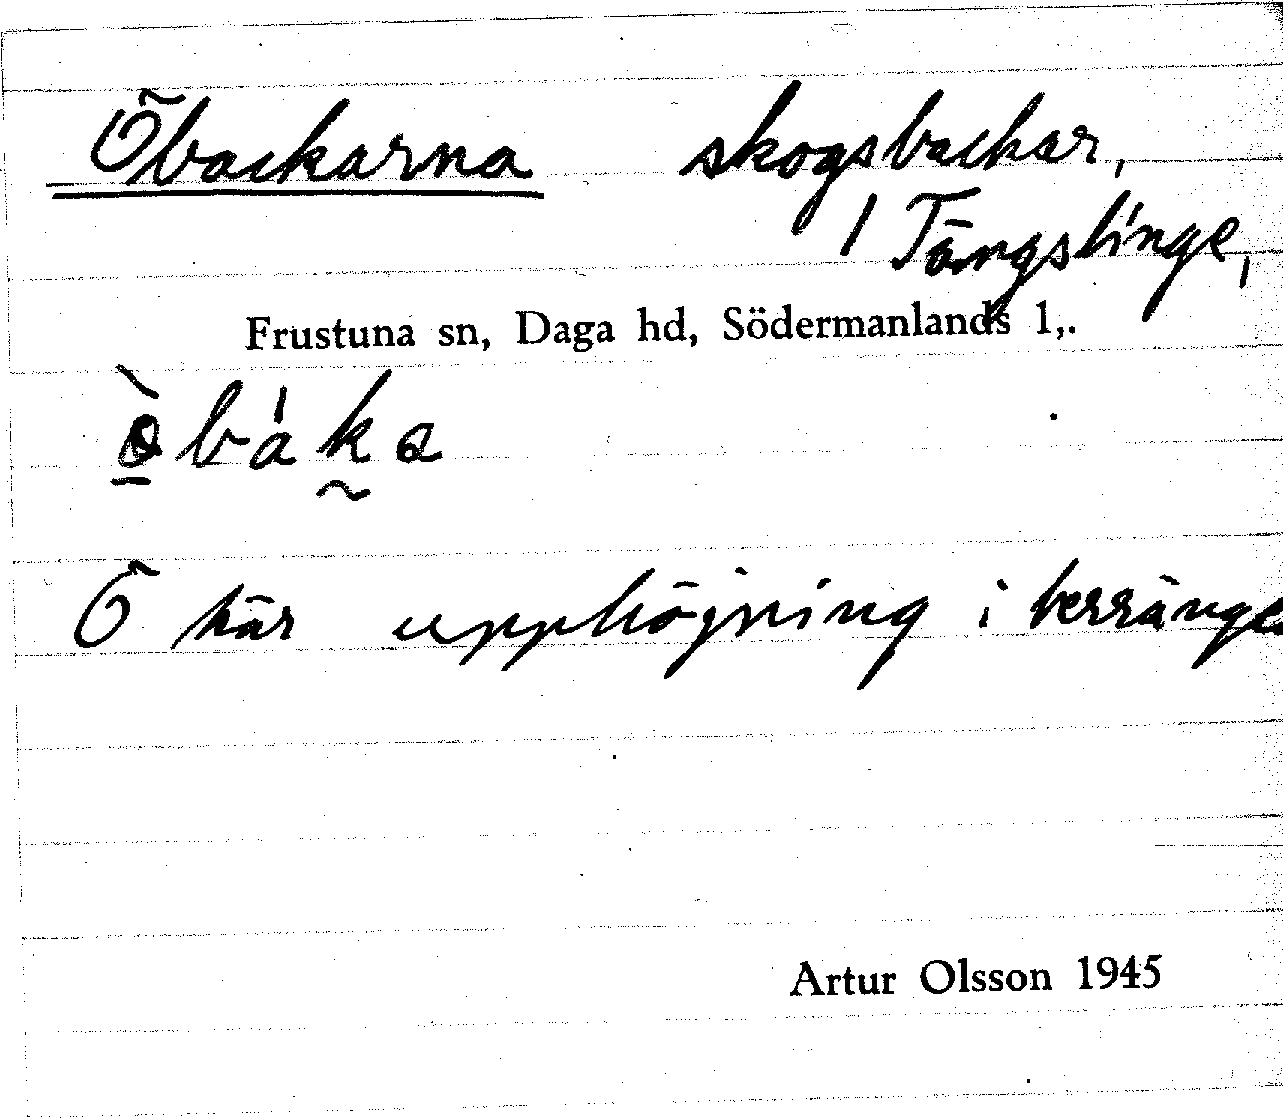 Öbackarna skogsbackar,
/ Tängslinge,
Frustuna sn, Daga hd, Södermanlands l,.
ö̀bákа
Ö här upphöjning i terränge
Artur Olsson 1945